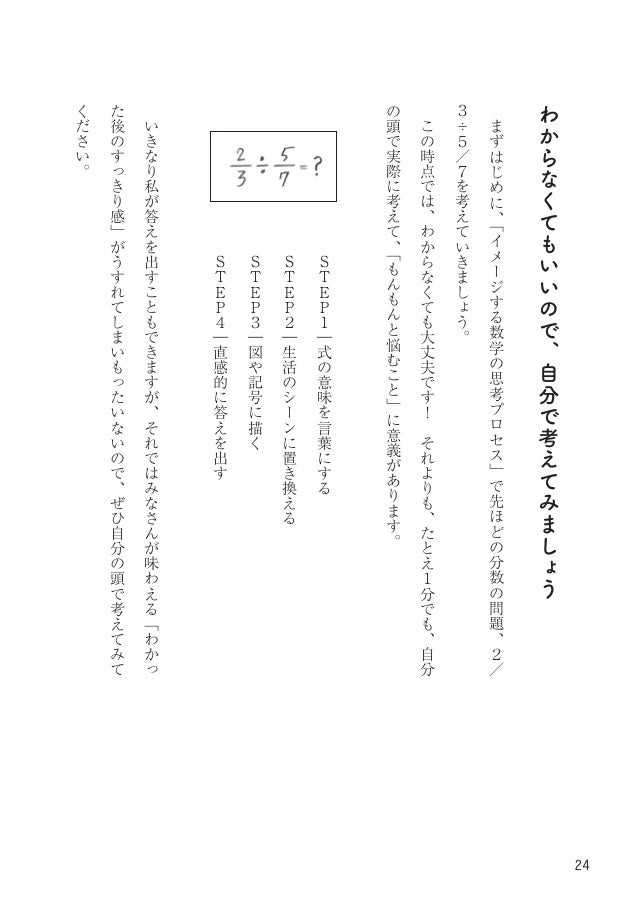 わからなくてもいいので、自分で考えてみましょう
まずはじめに、「イメージする数学の思考プロセス」で先ほどの分数の問題、２／
３÷５／７を考えていきましょう。
この時点では、わからなくても大丈夫です！　それよりも、たとえ１分でも、自分
の頭で実際に考えて、「もんもんと悩むこと」に意義があります。
2/3÷5/7=?
ＳＴＥＰ１｜式の意味を言葉にする
ＳＴＥＰ２｜生活のシーンに置き換える
ＳＴＥＰ３｜図や記号に描く
ＳＴＥＰ４｜直感的に答えを出す
いきなり私が答えを出すこともできますが、それではみなさんが味わえる「わかっ
た後のすっきり感」がうすれてしまいもったいないので、ぜひ自分の頭で考えてみて
ください。
24